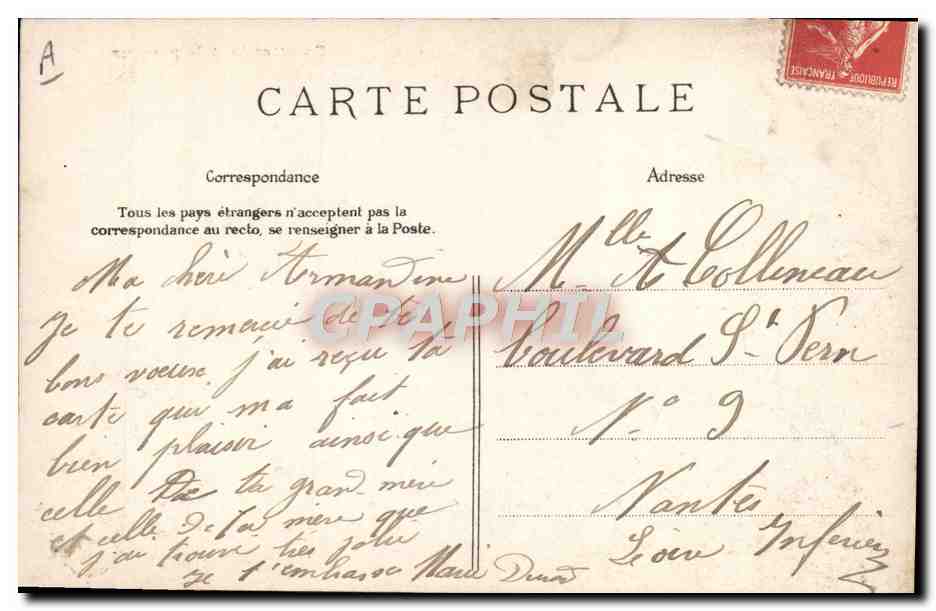 A
REPUBLIQUE FRANÇAISE
CARTE POSTALE
Correspondance
Tous les pays étrangers n'acceptent pas la
correspondance au recto, se renseigner à la Poste.
Ma chère Armandine
Je te remercie de tes
bons voeux j'ai reçu ta
carte qui m a fait
bien plaisir ainsi que
celle De ta grand mère
et celle de ta mère que
j'ai trouvé très jolie
je t'embrasse Marie Durand
Adresse
Mlle A Collineau
Boulevard St Pern
No 9
Nantes
Loire Inférieure
CPAPHIL